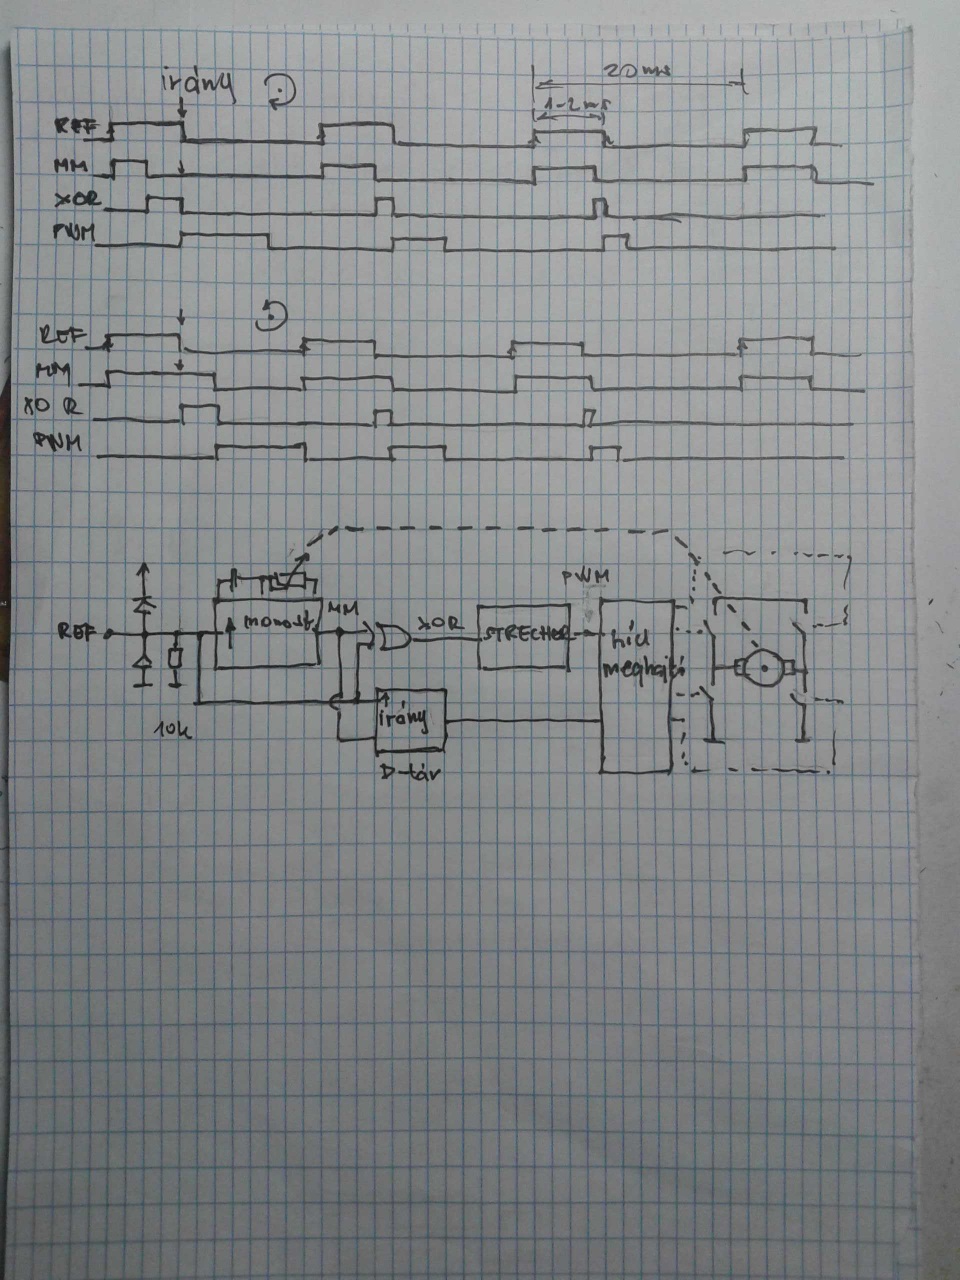 irány
20 ms
1-2 ms
REF
MM
XOR
PWM
REF
MM
XOR
PWM
PWM
REF
monost.
MM
XOR
STRECHER
híd
meghajtó
irány
10k
D-tár